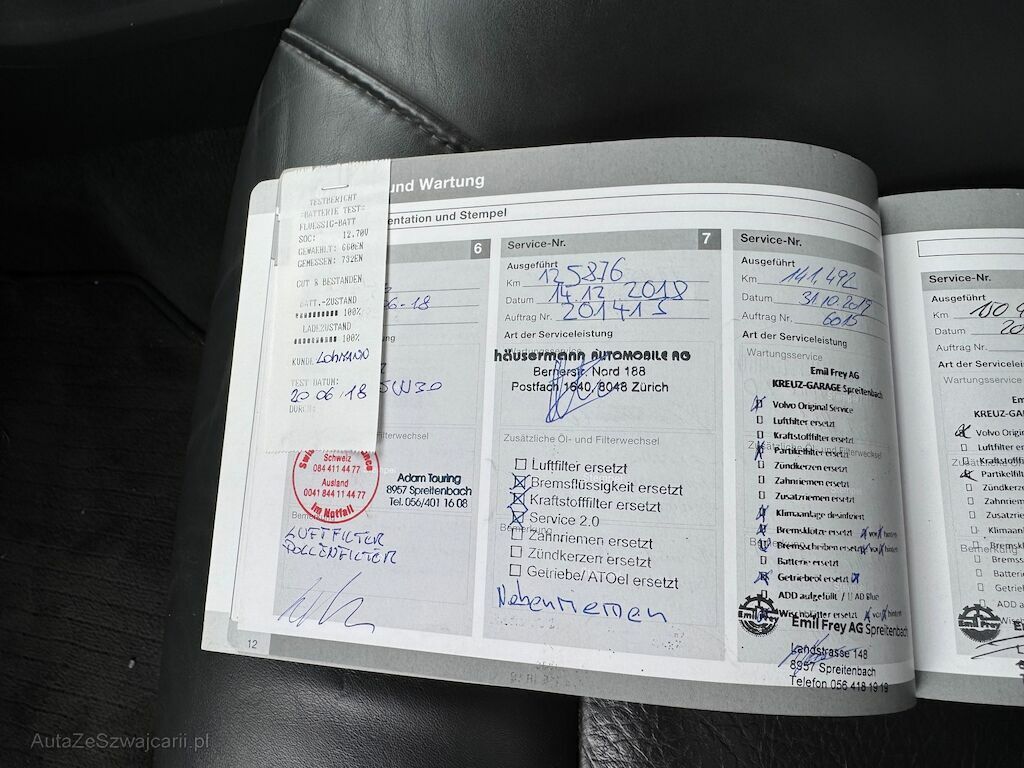 und Wartung
entation und Stempel
TESTBERICHT
=BATTERIE TEST=
FLUESSIG-BATT
SOC: 12.70V
GEWAEHLT: 660EN
GEMESSEN: 732EN
GUT & BESTANDEN
BATT.-ZUSTAND
100%
LADEZUSTAND
100%
KUNDE Lohmann
TEST DATUM:
20 06.18
DURCH:
6
6-18
5W30
Filterwechsel
Schweiz
084 411 44 77
Ausland
0041 844 11 44 77
Im Notfall
Adam Touring
8957 Spreitenbach
Tel. 056/401 16 08
LUFTFILTER
POLLENFILTER
12
Service-Nr. 7
Ausgeführt
Km 125876
Datum 14.12 2018
Auftrag Nr. 201415
Art der Serviceleistung
häusermann AUTOMOBILE AG
Bernerstr. Nord 188
Postfach 1640, 8048 Zürich
Zusätzliche Öl- und Filterwechsel
Luftfilter ersetzt
Bremsflüssigkeit ersetzt
Kraftstofffilter ersetzt
Service 2.0
Bemerkung
Zahnriemen ersetzt
Zündkerzen ersetzt
Getriebe/ ATOel ersetzt
Nebenriemen
Service-Nr.
Ausgeführt
Km 141.492
Datum 31.10.2019
Auftrag Nr. 6015
Art der Serviceleistung
Wartungsservice
Emil Frey AG
KREUZ-GARAGE Spreitenbach
Volvo Original Service
Luftfilter ersetzt
Kraftstofffilter ersetzt
Partikelfilter ersetzt
Zündkerzen ersetzt
Zahnriemen ersetzt
Zusatzriemen ersetzt
Klimaanlage desinfiziert
Bremsklötze ersetzt vorn hinten
Bremsscheiben ersetzt vorn hinten
Batterie ersetzt
Getriebeöl ersetzt
ADD aufgefüllt / AD Blue
Wischblätter ersetzt vorn hinten
Emil Frey
Emil Frey AG Spreitenbach
Landstrasse 148
8957 Spreitenbach
Telefon 056 418 19 19
Service-Nr.
Ausgeführt
Km
Datum
Auftrag Nr.
Art der Service
Wartungsservice
KREUZ-GARA
Volvo Origin
Luftfilter er
Kraftstofff
Partikelfil
Zündkerze
Zahnriemen
Zusatzrieme
Klimaanlage
Bemerkung
Bremsk
Bremss
Batteri
Getrieb
ADD a
AutaZeSzwajcarii.pl